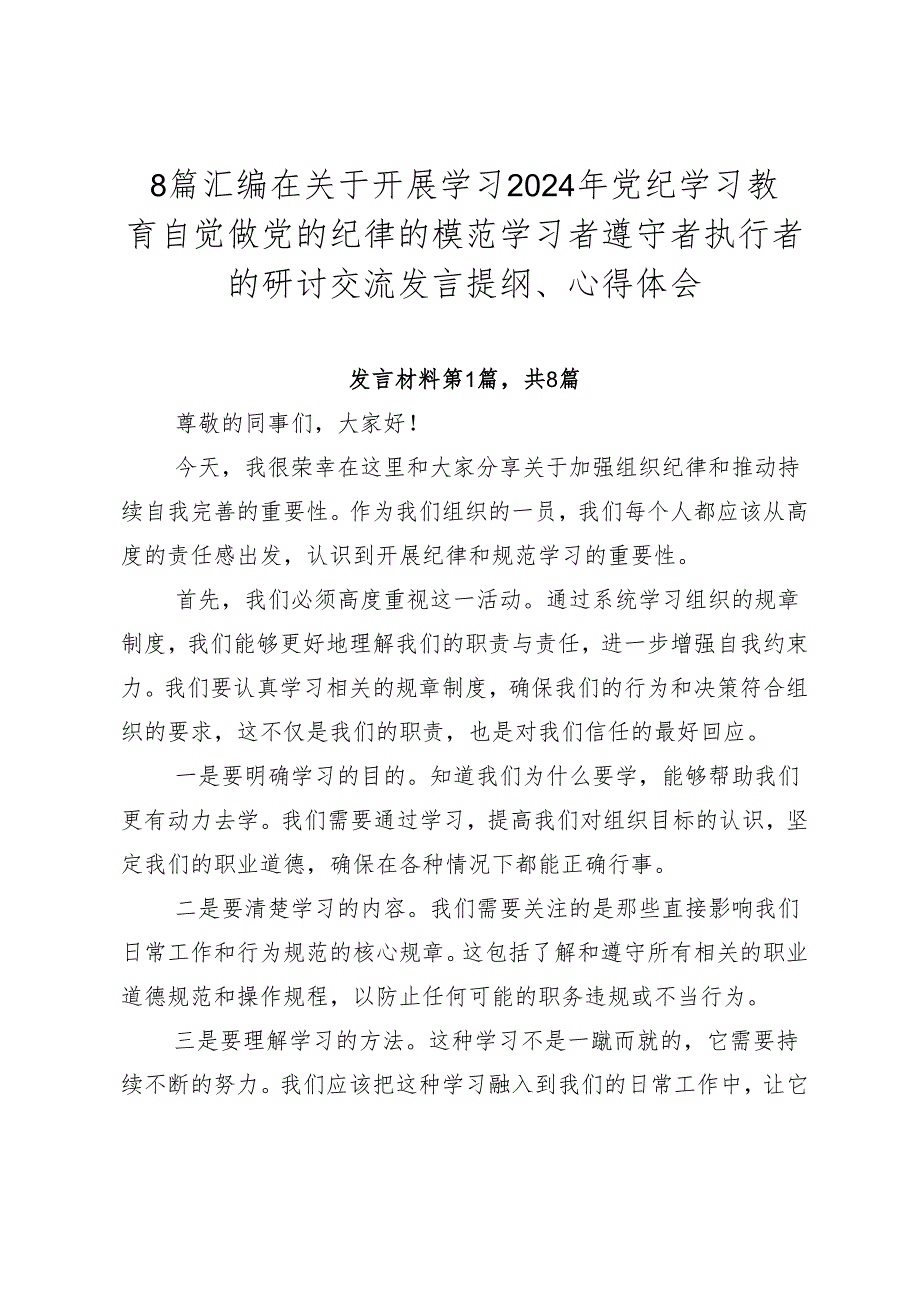 8篇汇编在关于开展学习2024年党纪学习教
育自觉做党的纪律的模范学习者遵守者执行者
的研讨交流发言提纲、心得体会
发言材料第1篇，共8篇
尊敬的同事们，大家好！
今天，我很荣幸在这里和大家分享关于加强组织纪律和推动持
续自我完善的重要性。作为我们组织的一员，我们每个人都应该从高
度的责任感出发，认识到开展纪律和规范学习的重要性。
首先，我们必须高度重视这一活动。通过系统学习组织的规章
制度，我们能够更好地理解我们的职责与责任，进一步增强自我约束
力。我们要认真学习相关的规章制度，确保我们的行为和决策符合组
织的要求，这不仅是我们的职责，也是对我们信任的最好回应。
一是要明确学习的目的。知道我们为什么要学，能够帮助我们
更有动力去学。我们需要通过学习，提高我们对组织目标的认识，坚
定我们的职业道德，确保在各种情况下都能正确行事。
二是要清楚学习的内容。我们需要关注的是那些直接影响我们
日常工作和行为规范的核心规章。这包括了解和遵守所有相关的职业
道德规范和操作规程，以防止任何可能的职务违规或不当行为。
三是要理解学习的方法。这种学习不是一蹴而就的，它需要持
续不断的努力。我们应该把这种学习融入到我们的日常工作中，让它